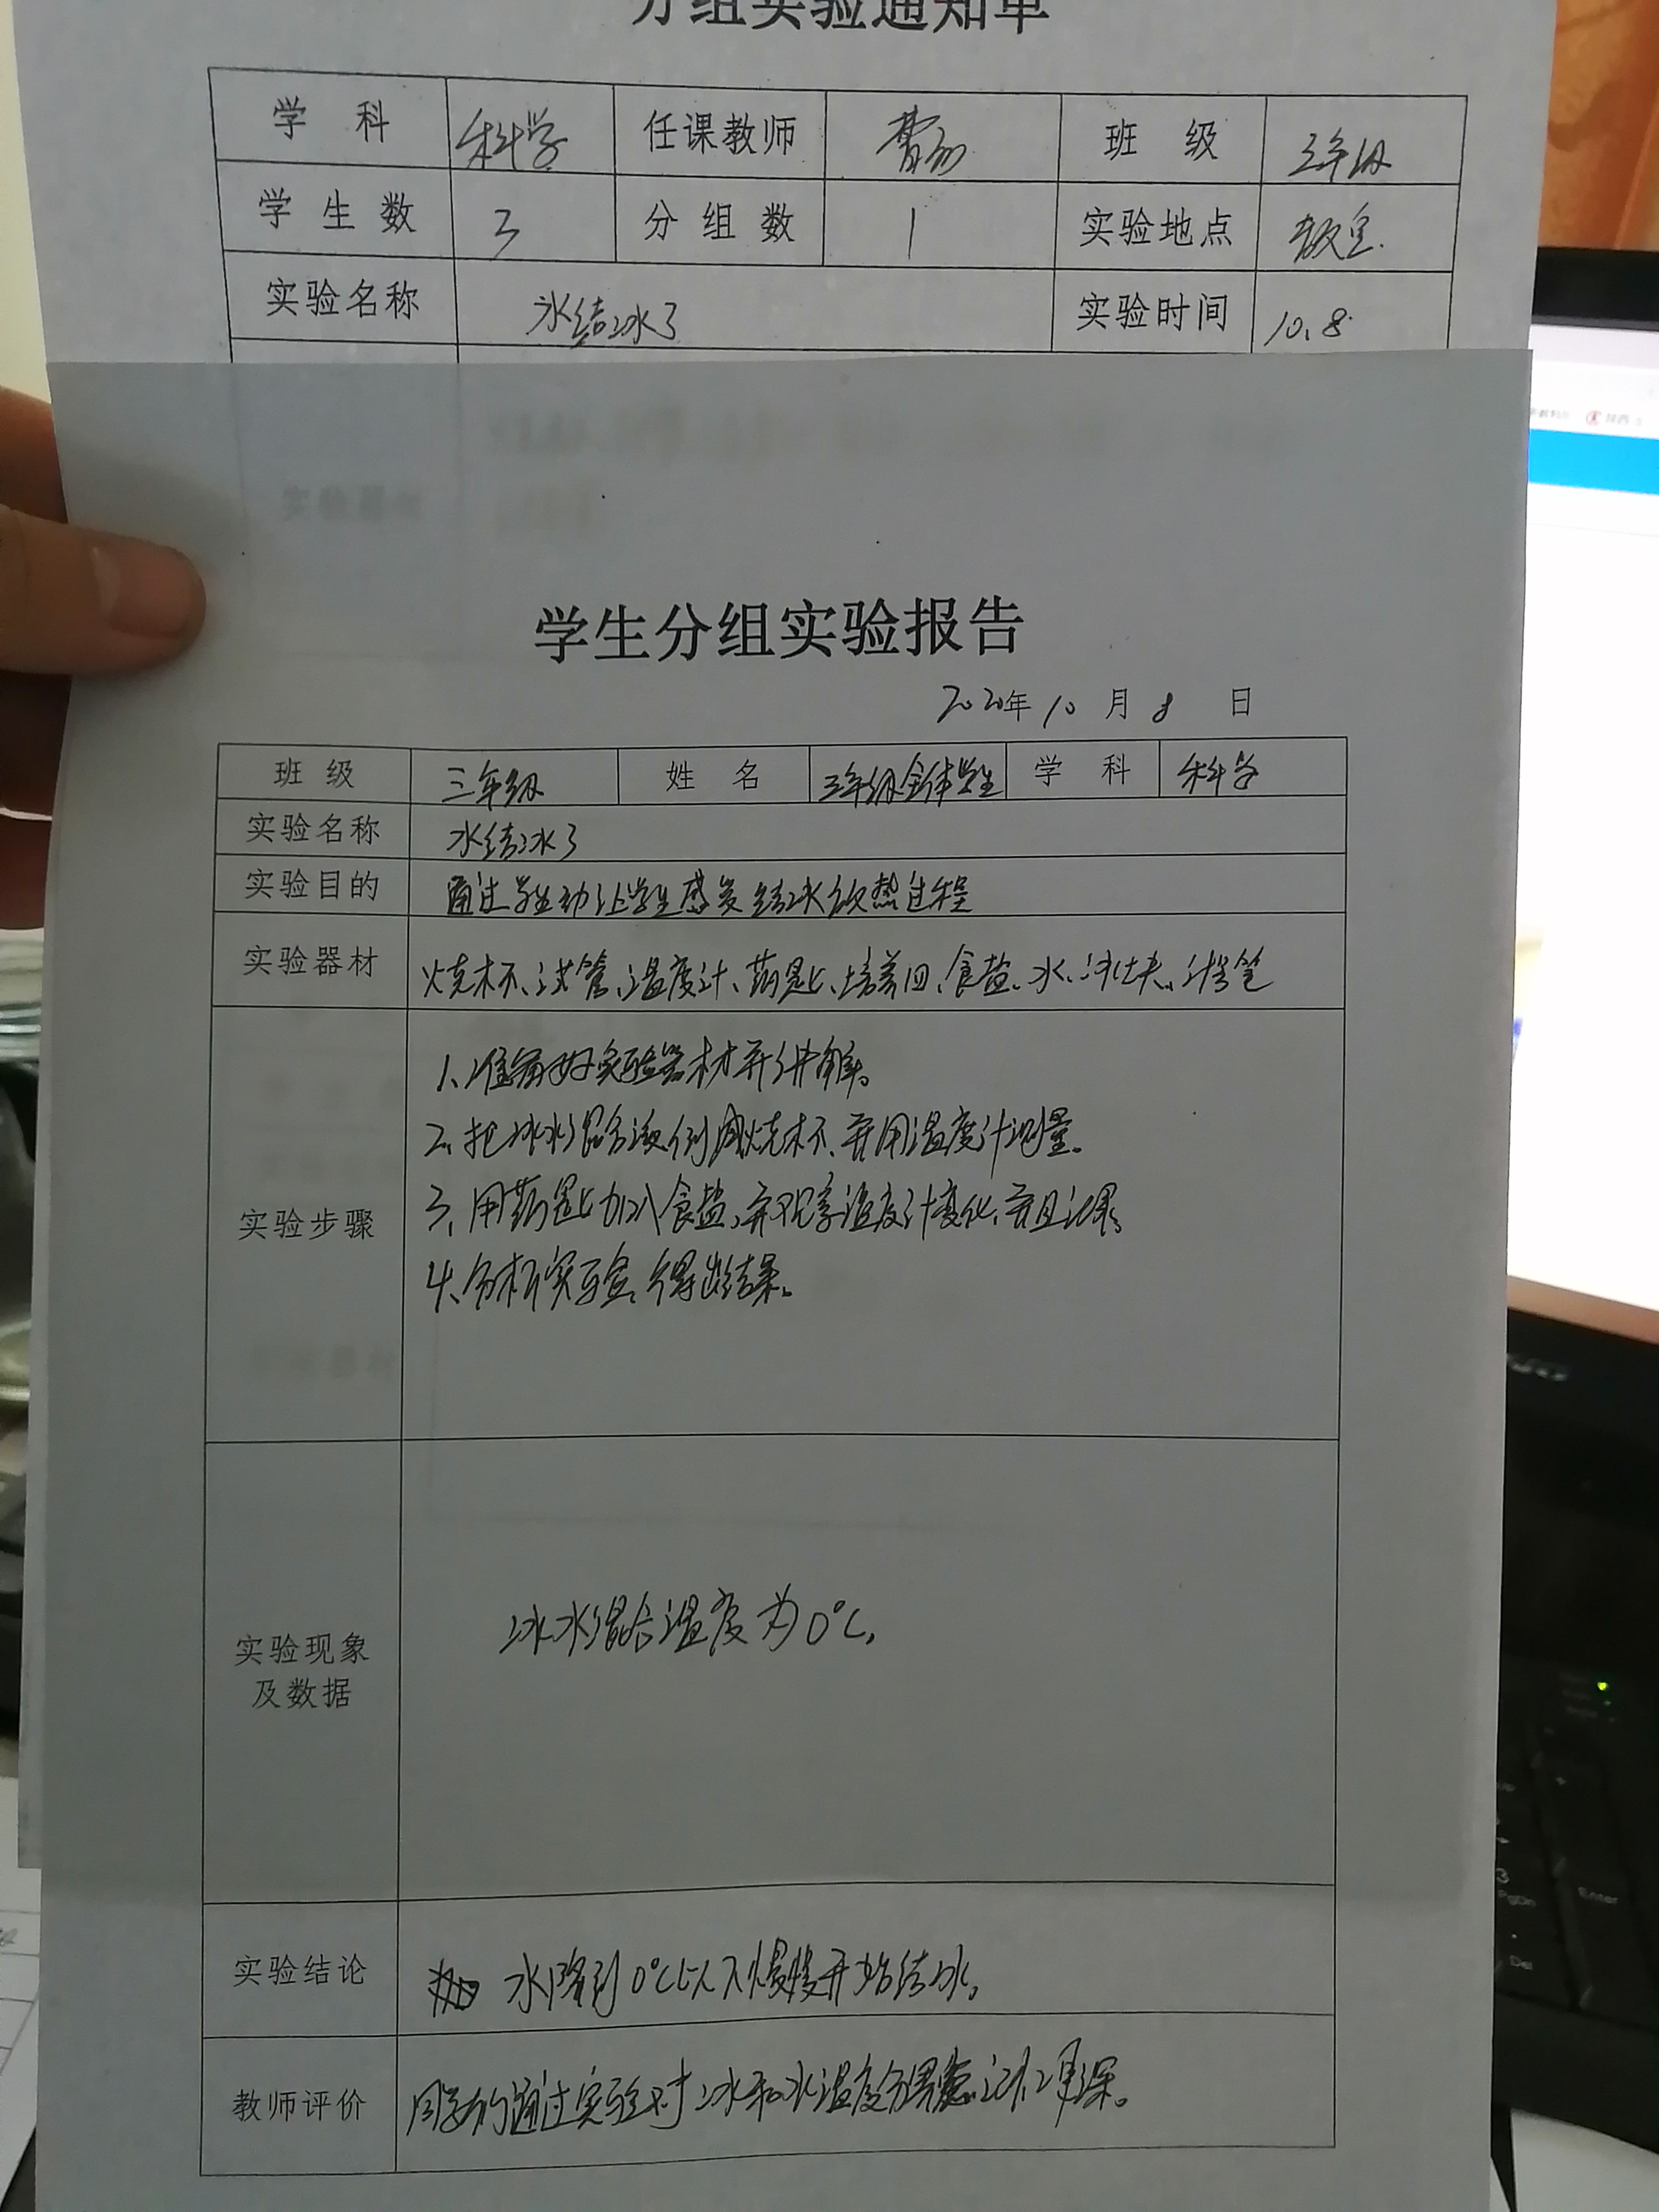 分组实验通知单
学科 科学 任课教师 班级 三年级
学生数 3 分组数 1 实验地点 教室
实验名称 水结冰了 实验时间 10.8
学生分组实验报告
2020年10月8日
班级 三年级 姓名 三年级全体学生 学科 科学
实验名称 水结冰了
实验目的 通过 让学生感受结冰放热过程
实验器材 烧杯、试管、温度计、药匙、培养皿、食盐、水、冰块、
1、准备好实验器材并讲解。
2、把冰水混合液倒 烧杯、并用温度计测量。
实验步骤
3、用药匙加入食盐,并观察温度计变化,并且记录。
4、分析实验,得出结果。
实验现象
及数据
冰水混合温度为0℃,
实验结论 水降到0℃以下慢慢开始结冰。
教师评价 同学们通过实验对冰和水温度 深。
Enter
PgDn
3
Del